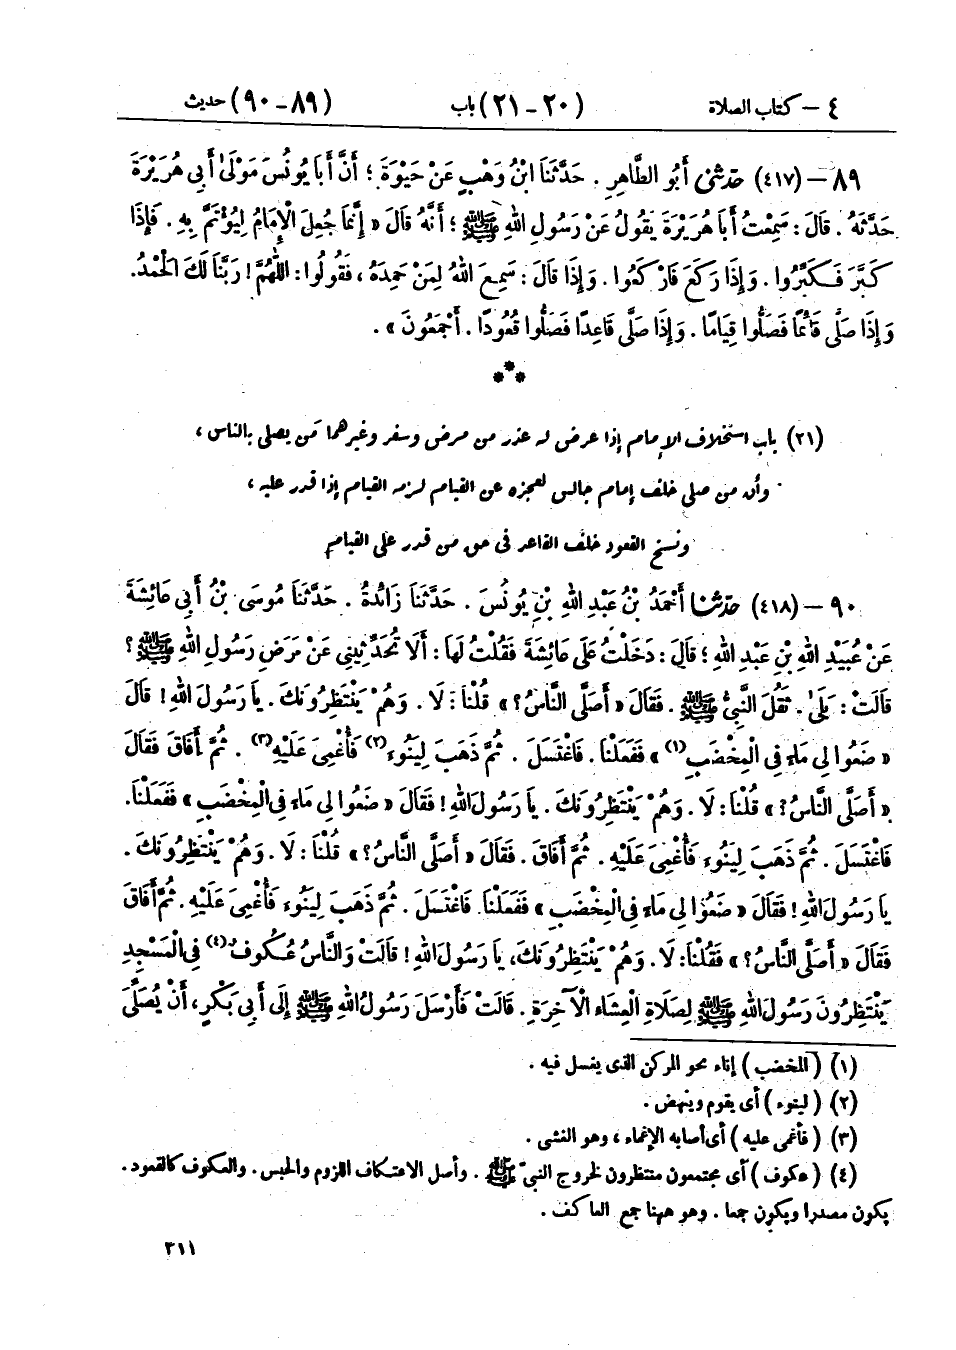 ٤ – كتاب الصلاة (٢٠ - ٢١) باب (٨٩ - ٩٠) حديث
٨٩ – (٤١٧) حَدَّثَنِي أَبُو الطَّاهِرِ . حَدَّثَنَا ابْنُ وَهْبٍ عَنْ حَيْوَةَ ؛ أَنَّ أَبَا يُونُسَ مَوْلَىٰ أَبِي هُرَيْرَةَ
حَدَّثَهُ . قَالَ : سَمِعْتُ أَبَا هُرَيْرَةَ يَقُولُ عَنْ رَسُولِ اللهِ ﷺ ؛ أَنَّهُ قَالَ « إِنَّمَا جُعِلَ الْإِمَامُ لِيُؤْتَمَّ بِهِ . فَإِذَا
كَبَّرَ فَكَبِّرُوا . وَإِذَا رَكَعَ فَارْكَعُوا . وَإِذَا قَالَ : سَمِعَ اللهُ لِمَنْ حَمِدَهُ ، فَقُولُوا : اللَّهُمَّ ! رَبَّنَا لَكَ الْحَمْدُ .
وَإِذَا صَلَّى قَائِمًا فَصَلُّوا قِيَامًا . وَإِذَا صَلَّى قَاعِدًا فَصَلُّوا قُعُودًا . أَجْمَعُونَ » .
***
(٢١) باب استخلاف الإمام إذا عرض له عذر من مرض وسفر وغيرهما مَن يصلى بالناس ،
وأن من صلى خلف إمام جالس لعجزه عن القيام لزمه القيام إذا قدر عليه ،
ونسخ القعود خلف القاعد فى حق من قدر على القيام
٩٠ – (٤١٨) حَدَّثَنَا أَحْمَدُ بْنُ عَبْدِ اللهِ بْنِ يُونُسَ . حَدَّثَنَا زَائِدَةُ . حَدَّثَنَا مُوسَى بْنُ أَبِي عَائِشَةَ
عَنْ عُبَيْدِ اللهِ بْنِ عَبْدِ اللهِ ؛ قَالَ : دَخَلْتُ عَلَى عَائِشَةَ فَقُلْتُ لَهَا : أَلَا تُحَدِّثِينِي عَنْ مَرَضِ رَسُولِ اللهِ ﷺ ؟
قَالَتْ : بَلَىٰ . ثَقُلَ النَّبِيُّ ﷺ . فَقَالَ « أَصَلَّى النَّاسُ ؟ » قُلْنَا : لَا . وَهُمْ يَنْتَظِرُونَكَ . يَا رَسُولَ اللهِ ! قَالَ
« ضَعُوا لِي مَاءً فِي الْمِخْضَبِ (١) » فَفَعَلْنَا . فَاغْتَسَلَ . ثُمَّ ذَهَبَ لِيَنُوءَ (٢) فَأُغْمِيَ عَلَيْهِ (٣) . ثُمَّ أَفَاقَ فَقَالَ
« أَصَلَّى النَّاسُ ؟ » قُلْنَا : لَا . وَهُمْ يَنْتَظِرُونَكَ . يَا رَسُولَ اللهِ ! فَقَالَ « ضَعُوا لِي مَاءً فِي الْمِخْضَبِ » فَفَعَلْنَا .
فَاغْتَسَلَ . ثُمَّ ذَهَبَ لِيَنُوءَ فَأُغْمِيَ عَلَيْهِ . ثُمَّ أَفَاقَ . فَقَالَ « أَصَلَّى النَّاسُ ؟ » قُلْنَا : لَا . وَهُمْ يَنْتَظِرُونَكَ .
يَا رَسُولَ اللهِ ! فَقَالَ « ضَعُوا لِي مَاءً فِي الْمِخْضَبِ » فَفَعَلْنَا . فَاغْتَسَلَ . ثُمَّ ذَهَبَ لِيَنُوءَ فَأُغْمِيَ عَلَيْهِ . ثُمَّ أَفَاقَ
فَقَالَ « أَصَلَّى النَّاسُ ؟ » فَقُلْنَا : لَا . وَهُمْ يَنْتَظِرُونَكَ ، يَا رَسُولَ اللهِ ! قَالَتْ وَالنَّاسُ عُكُوفٌ (٤) فِي الْمَسْجِدِ
يَنْتَظِرُونَ رَسُولَ اللهِ ﷺ لِصَلَاةِ الْعِشَاءِ الْآخِرَةِ . قَالَتْ فَأَرْسَلَ رَسُولُ اللهِ ﷺ إِلَى أَبِي بَكْرٍ ، أَنْ يُصَلِّيَ
(١) ( المخضب ) إناء نحو المركن الذى يغسل فيه .
(٢) ( لينوء ) أى يقوم وينهض .
(٣) ( فأغمى عليه ) أى أصابه الإغماء ، وهو الغشى .
(٤) ( عكوف ) أى مجتمعون منتظرون لخروج النبيّ ﷺ . وأصل الاعتكاف اللزوم والحبس . والعكوف كالقعود .
يكون مصدرا ويكون جمعا . وهو ههنا جمع العاكف .
٣١١